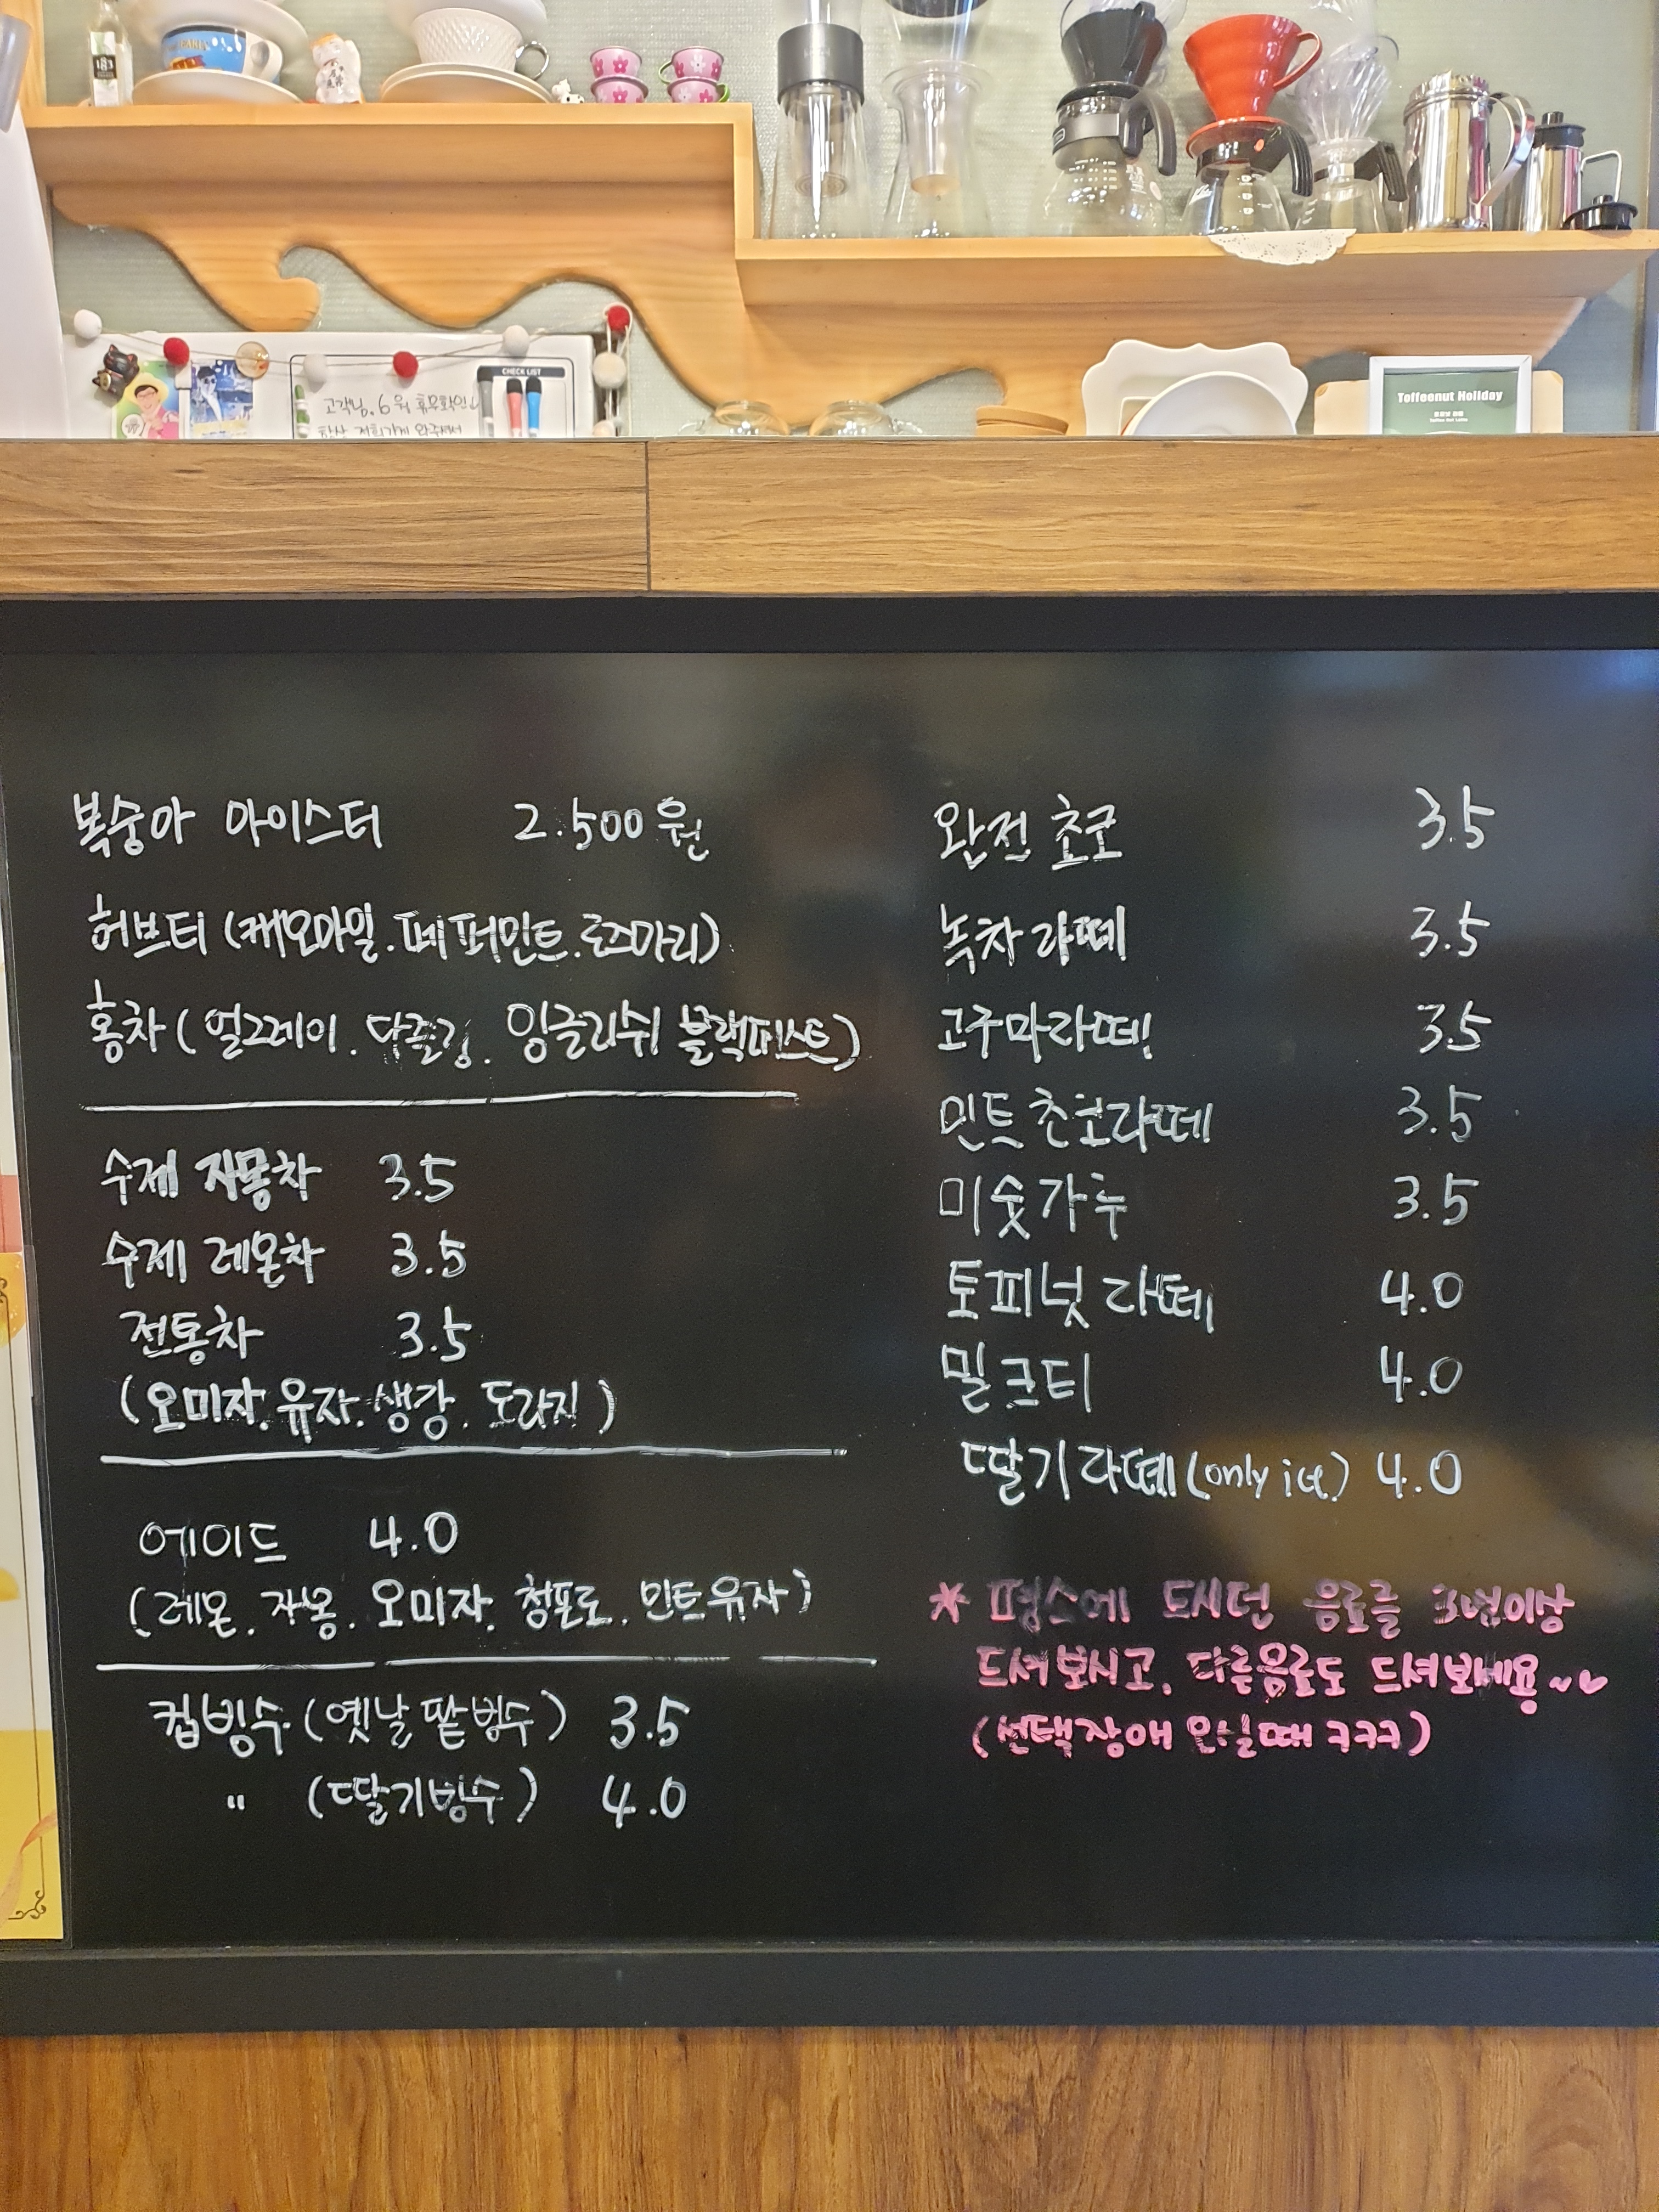 183
CHECK LIST
고객님. 6월 휴무확인
항상 저희가게 와주셔서
Toffeenut Holiday
Toffee Nut Latte
복숭아 아이스티 2.500원
허브티 (캐모마일. 페퍼민트. 로즈마리)
홍차 (얼그레이. 다즐링. 잉글리쉬 블랙퍼스트)
수제 자몽차 3.5
수제 레몬차 3.5
전통차 3.5
(오미자. 유자. 생강. 도라지)
에이드 4.0
(레몬. 자몽. 오미자. 청포도. 민트유자)
컵빙수 (옛날 팥빙수) 3.5
" (딸기빙수) 4.0
완전 초코 3.5
녹차라떼 3.5
고구마라떼! 3.5
민트초코라떼 3.5
미숫가루 3.5
토피넛 라떼 4.0
밀크티 4.0
딸기라떼 (only ice) 4.0
* 평소에 드시던 음료를 3번이상
드셔보시고, 다른음료도 드셔보세용~♡
(선택장애 오실때 ㅋㅋㅋ)